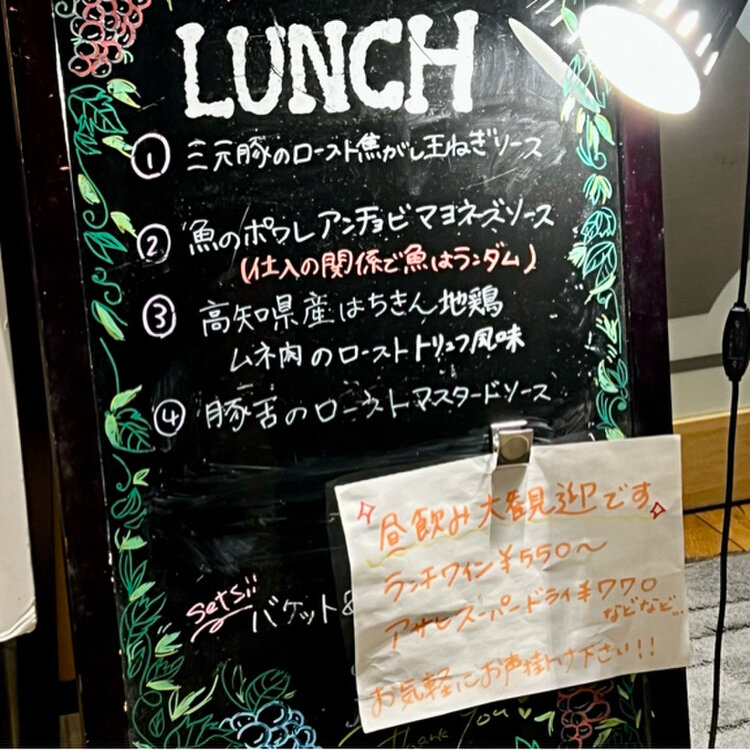 LUNCH
① 三元豚のロースト焦がし玉ねぎソース
② 魚のポワレアンチョビマヨネーズソース
(仕入の関係で魚はランダム)
③ 高知県産はちきん地鶏
ムネ肉のローストトリュフ風味
④ 豚舌のローストマスタードソース
setsii
バケット&
昼飲み大歓迎です
ランチワイン¥550〜
アサヒスーパードライ¥770
などなど...
お気軽にお声掛け下さい!!
Thank You